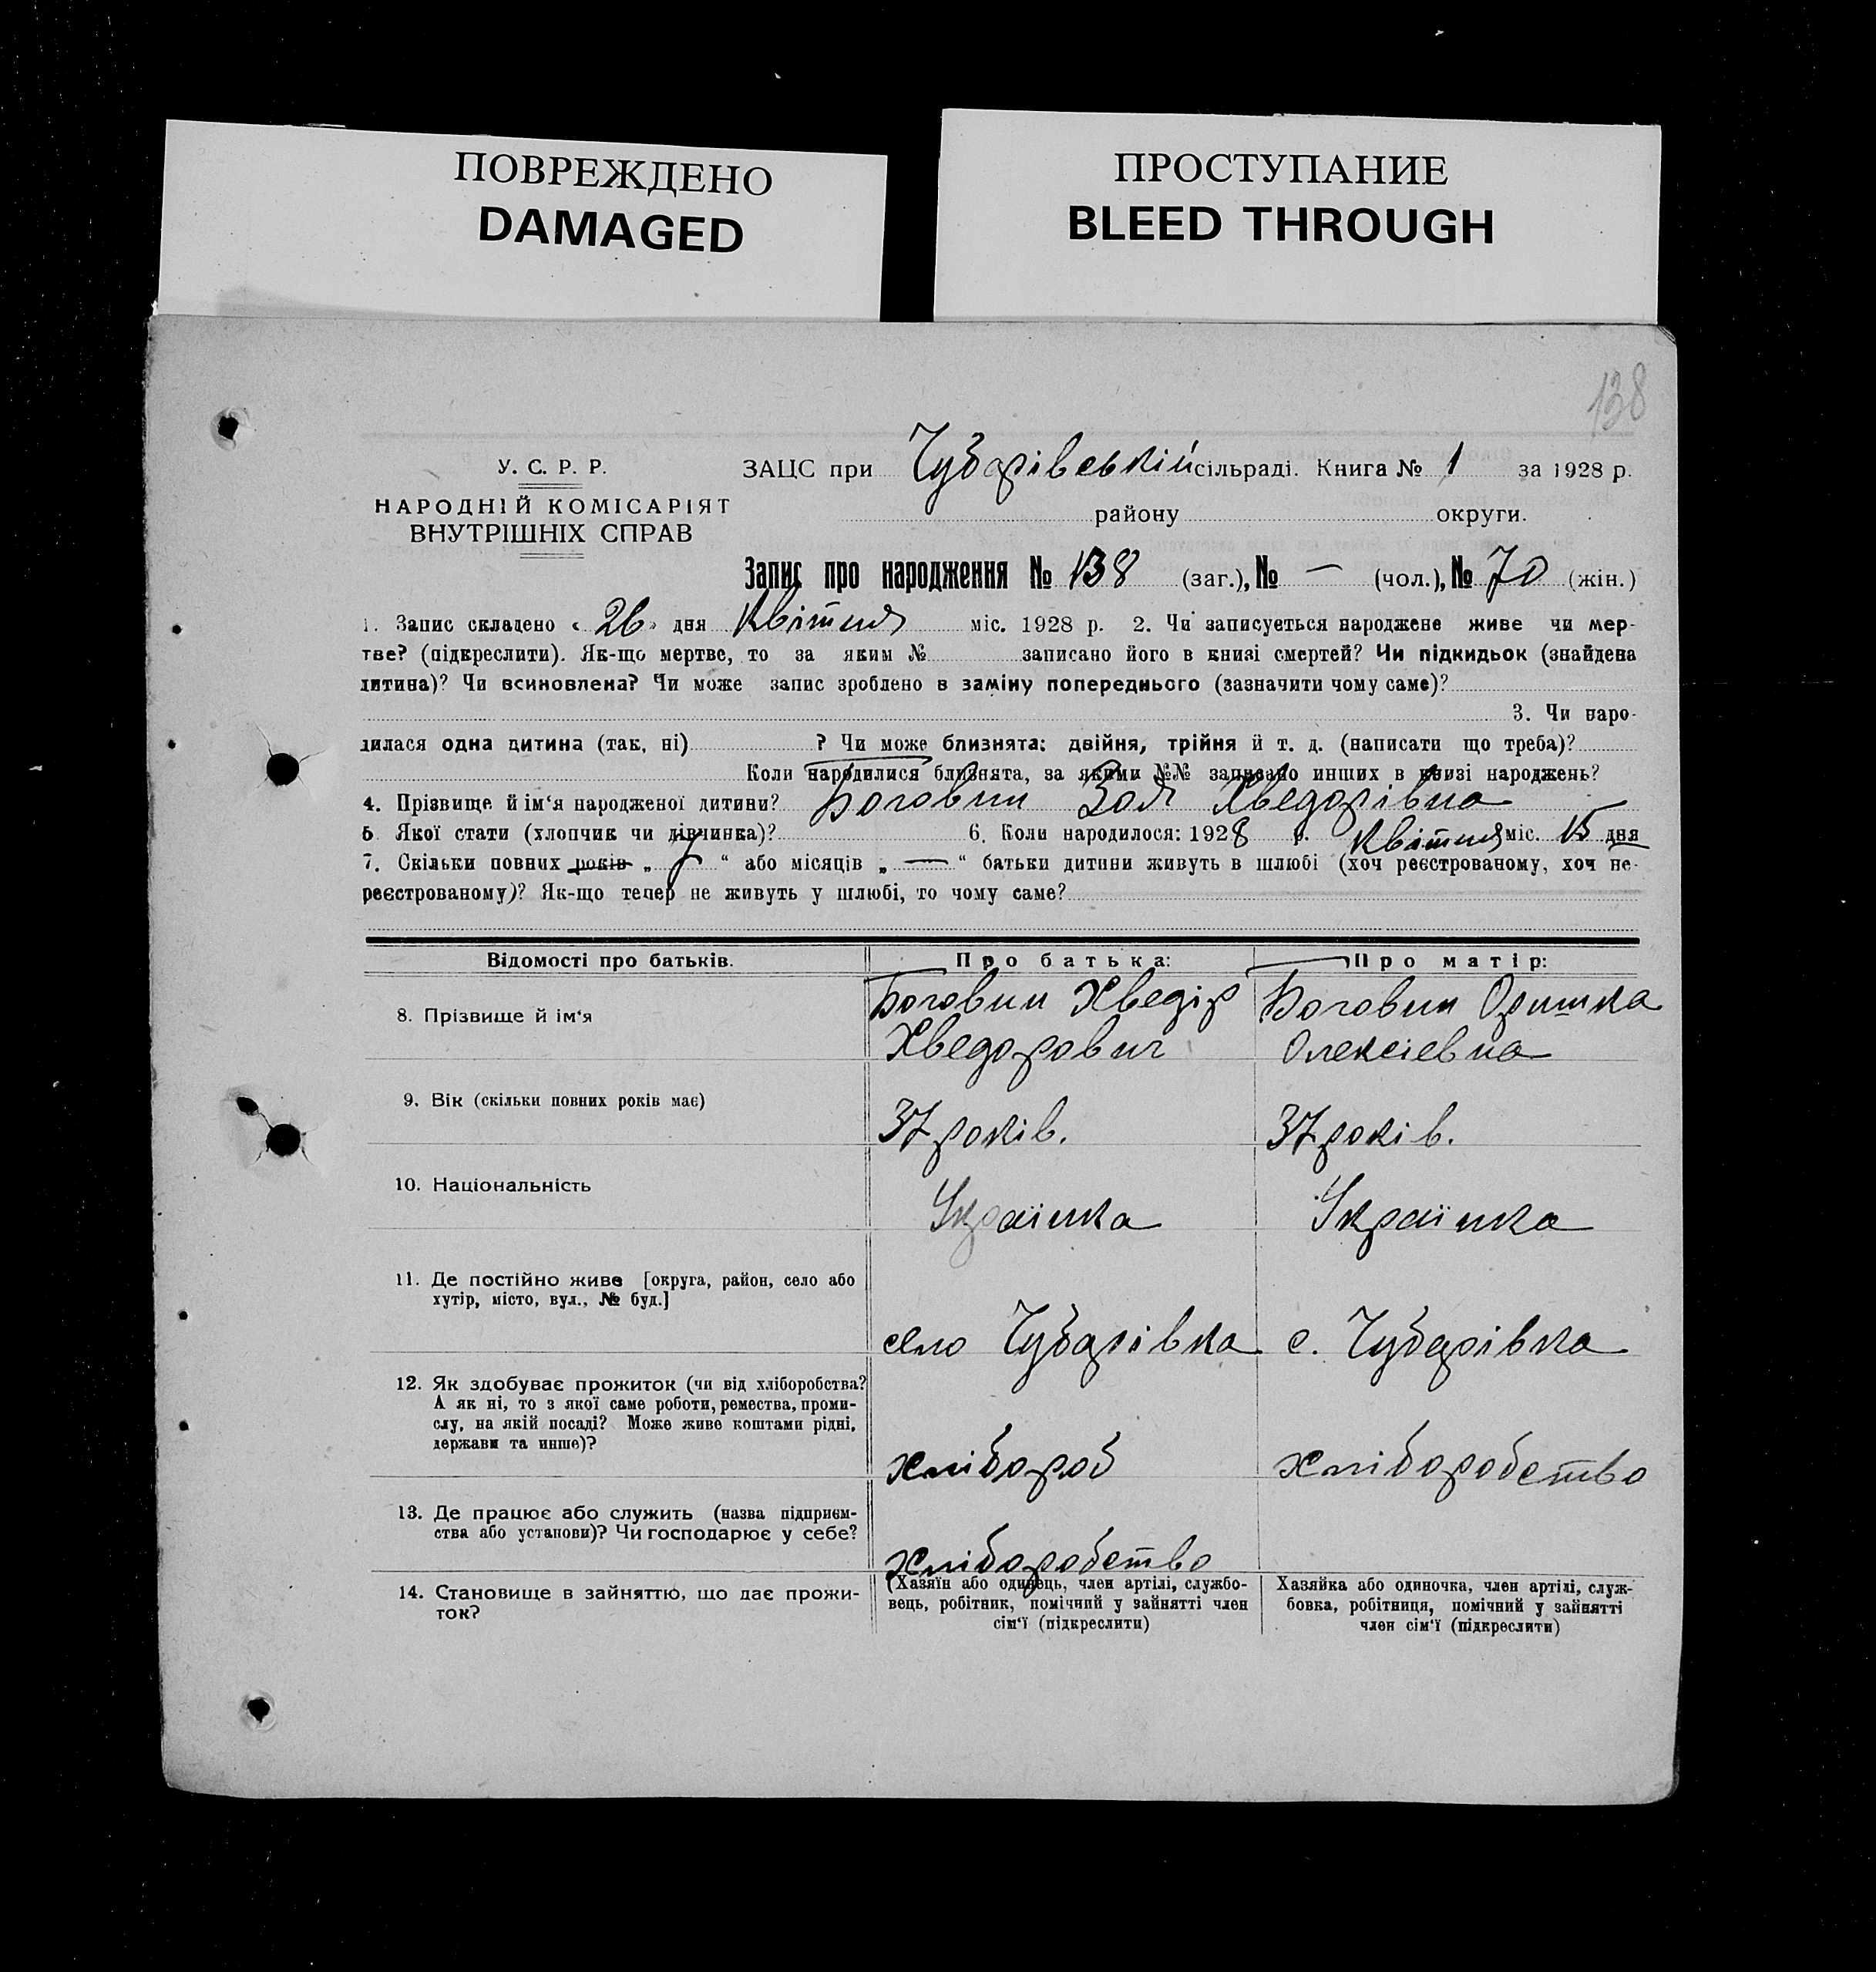 ПОВРЕЖДЕНО
DAMAGED
ПРОСТУПАНИЕ
BLEED THROUGH
138
У. С. Р. Р.
НАРОДНІЙ КОМІСАРІЯТ
ВНУТРІШНІХ СПРАВ
ЗАЦС при Чубарівській сільраді. Книга № 1 за 1928 р.
району округи.
Запис про народження № 138 (заг.), № — (чол.), № 70 (жін.)
1. Запис складено «26» дня Квітня міс. 1928 р. 2. Чи записується народжене живе чи мер-
тве? (підкреслити). Як-що мертве, то за яким № записано його в книзі смертей? Чи підкидьок (знайдена
дитина)? Чи всиновлена? Чи може запис зроблено в заміну попереднього (зазначити чому саме)?
3. Чи наро-
дилася одна дитина (так, ні) ? Чи може близнята: двійня, трійня й т. д. (написати що треба)?
Коли народилися близнята, за якими №№ записано инших в книзі народжень?
4. Прізвище й ім‘я народженої дитини? Боговин Зоя Хведорівна
5 Якої стати (хлопчик чи дівчинка)? 6. Коли народилося: 1928 р. Квітня міс. 15 дня
7. Скільки повних років „ “ або місяців „ — “ батьки дитини живуть в шлюбі (хоч реєстрованому, хоч не-
реєстрованому)? Як-що тепер не живуть у шлюбі, то чому саме?
Відомості про батьків. Про батька: Про матір:
8. Прізвище й ім‘я Боговин Хведір Боговин Оришка
Хведорович Олексіевна
9. Вік (скільки повних років має) 37 років. 37 років.
10. Національність Українка Українка
11. Де постійно живе [округа, район, село або
хутір, місто, вул., № буд.]
село Чубарівка с. Чубарівка
12. Як здобуває прожиток (чи від хліборобства?
А як ні, то з якої саме роботи, ремества, проми-
слу, на якій посаді? Може живе коштами рідні,
держави та инше)?
хлібороб хліборобство
13. Де працює або служить (назва підприєм-
ства або установи)? Чи господарює у себе?
хліборобство
14. Становище в зайняттю, що дає прожи-
ток?
(Хазяїн або одинець, член артілі, службо-
вець, робітник, помічний у зайнятті член
сім‘ї (підкреслити)
Хазяйка або одиночка, член артілі, служ-
бовка, робітниця, помічний у зайнятті
член сім‘ї (підкреслити)